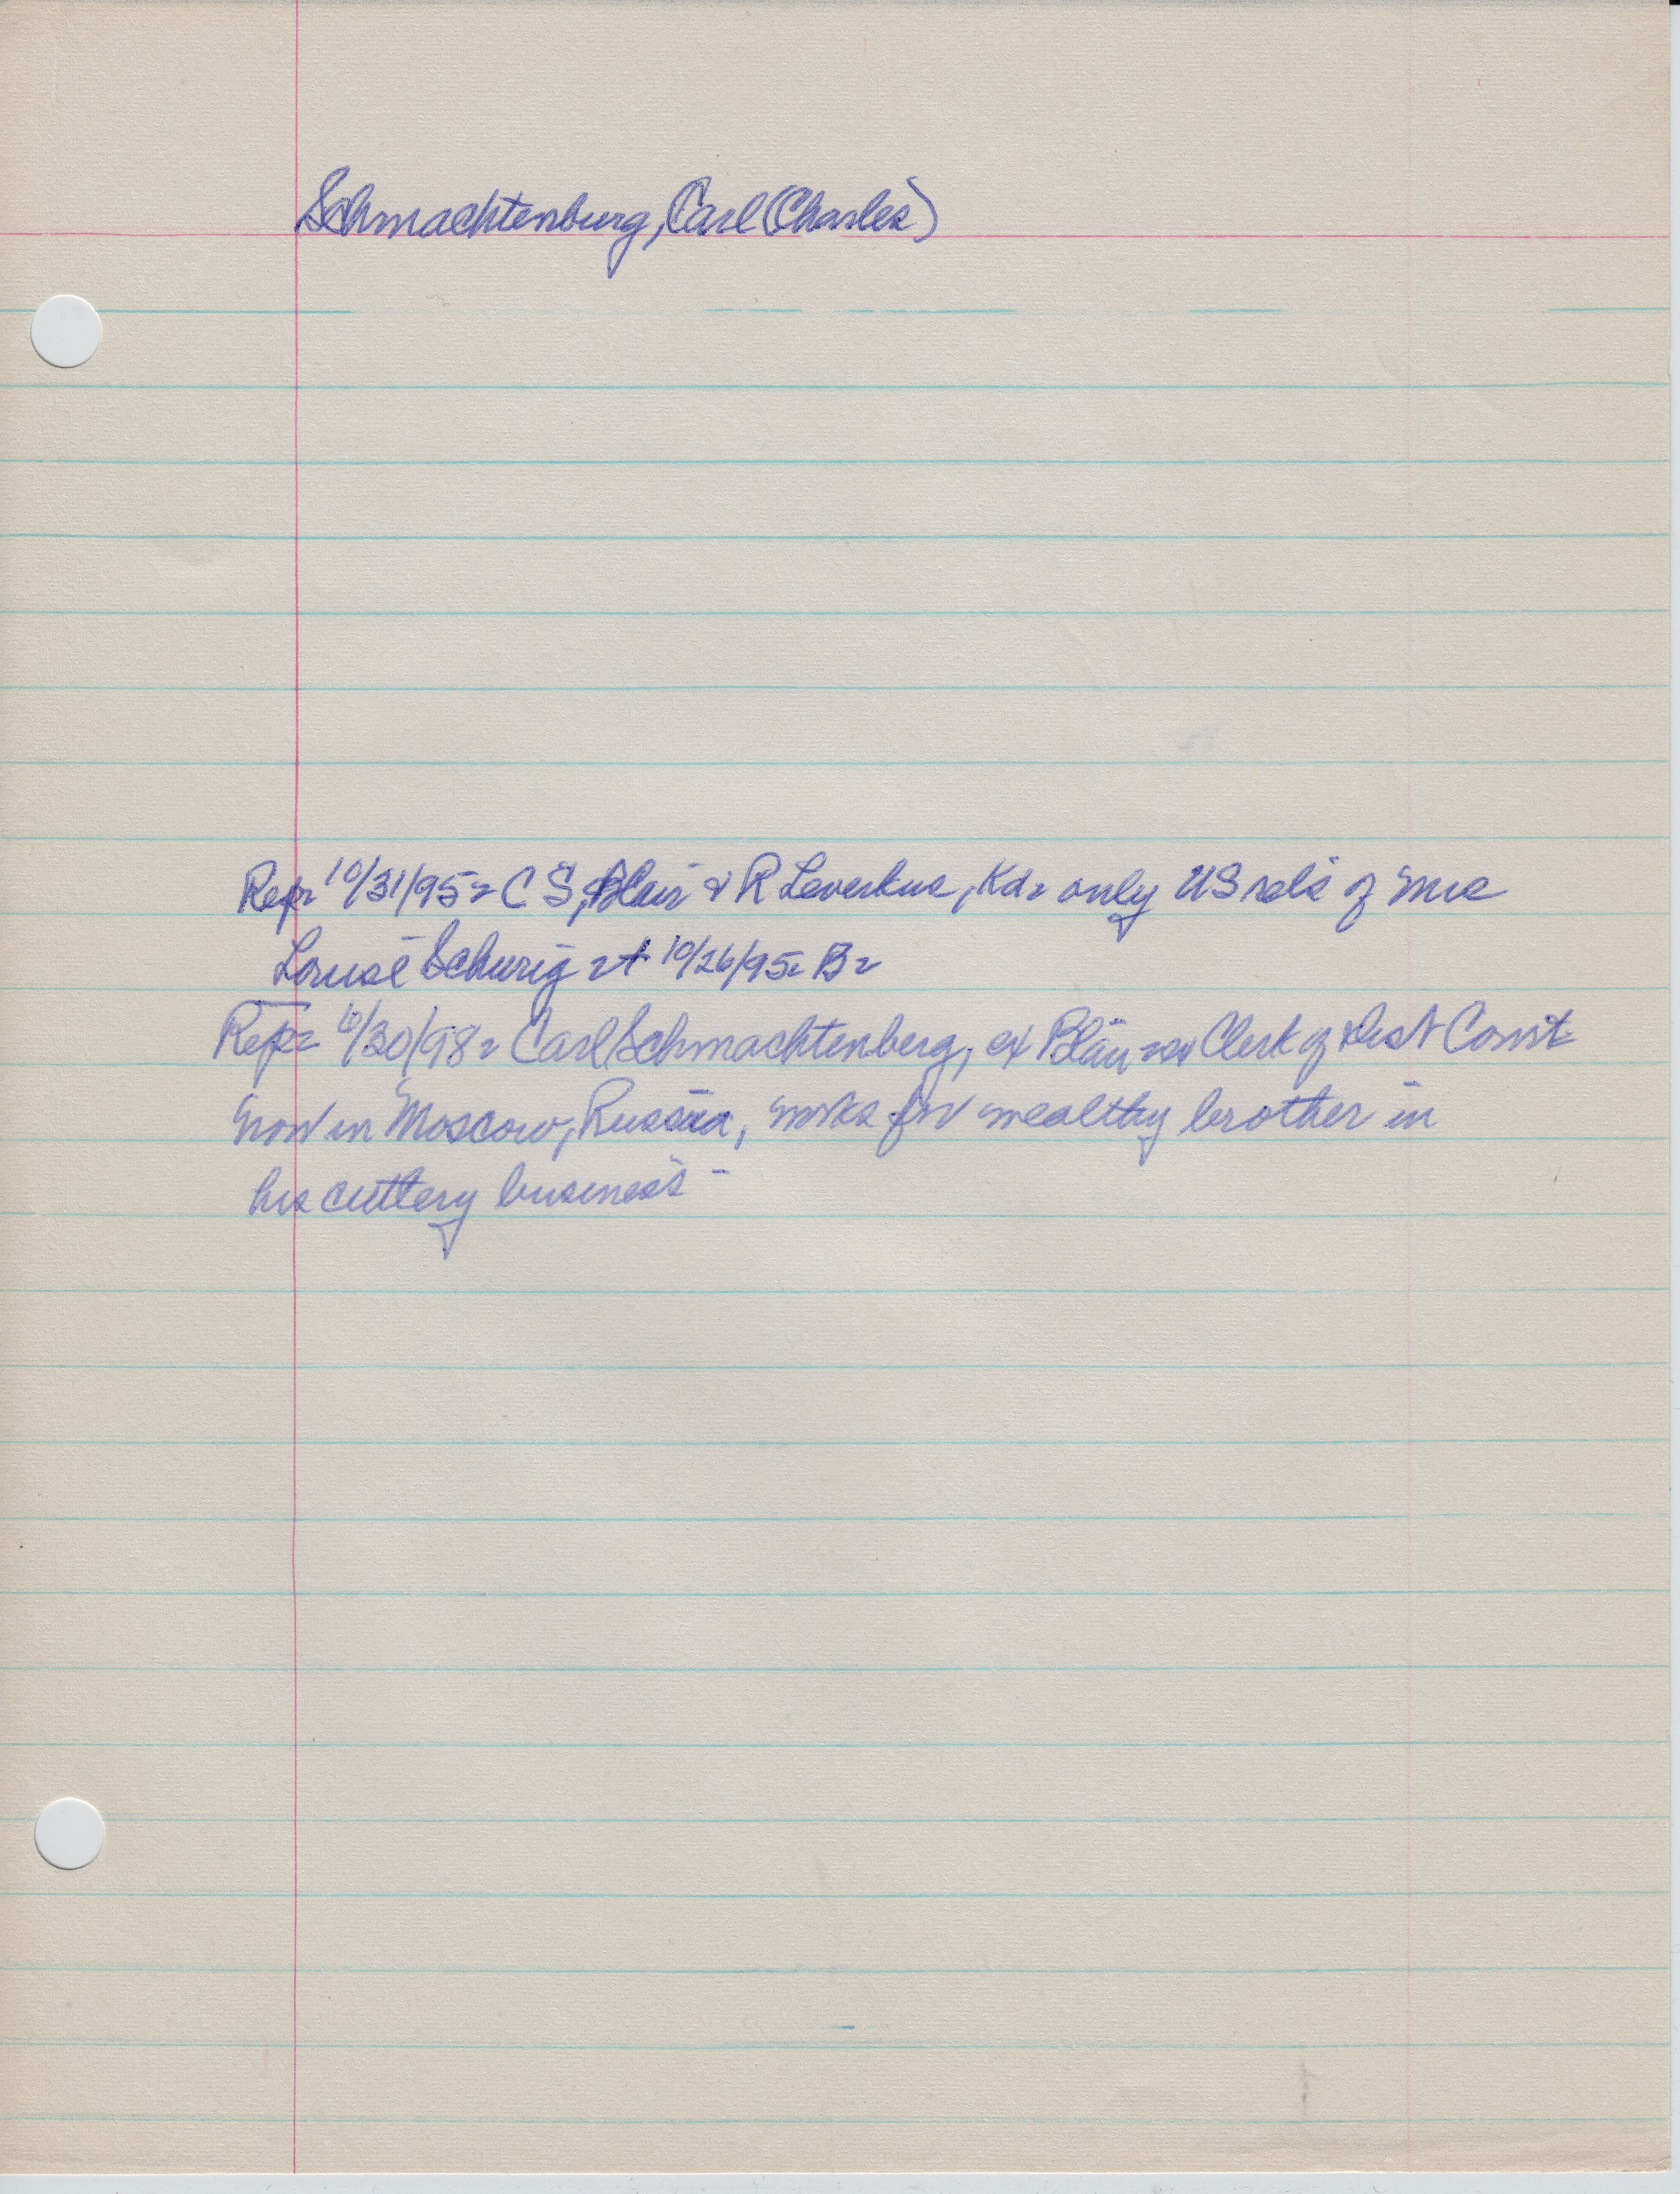 Schmachtenburg, Carl (Charles)
Rep- 10/31/95- C S, Blair & R Leverkus, Kd- only US rels of Mrs
Louise Schurig 10/26/95- B-
Rep- 6/30/98- Carl Schmachtenberg, ex Blair Clerk of Dist Court
now in Moscow, Russia, works for wealthy brother in
his cutlery business-